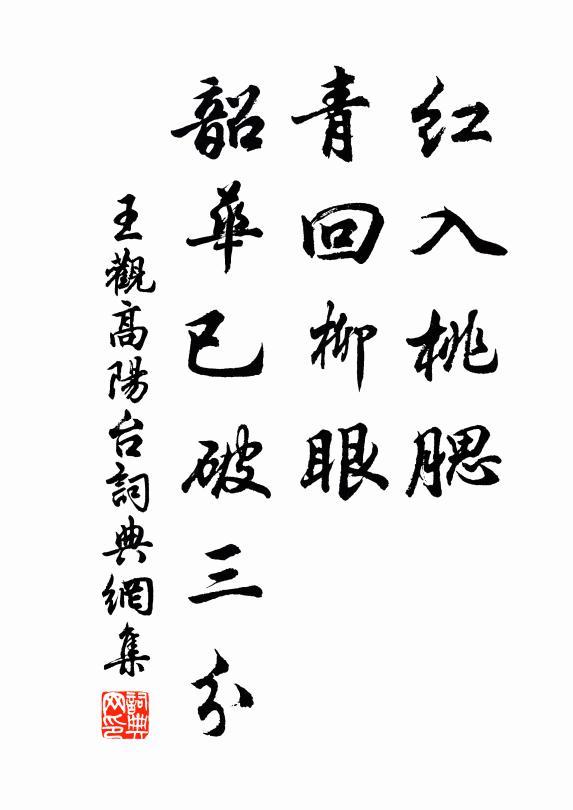 红入桃腮
青回柳眼
韶華已破三分
王觀高陽台詞典網集
詞典網印